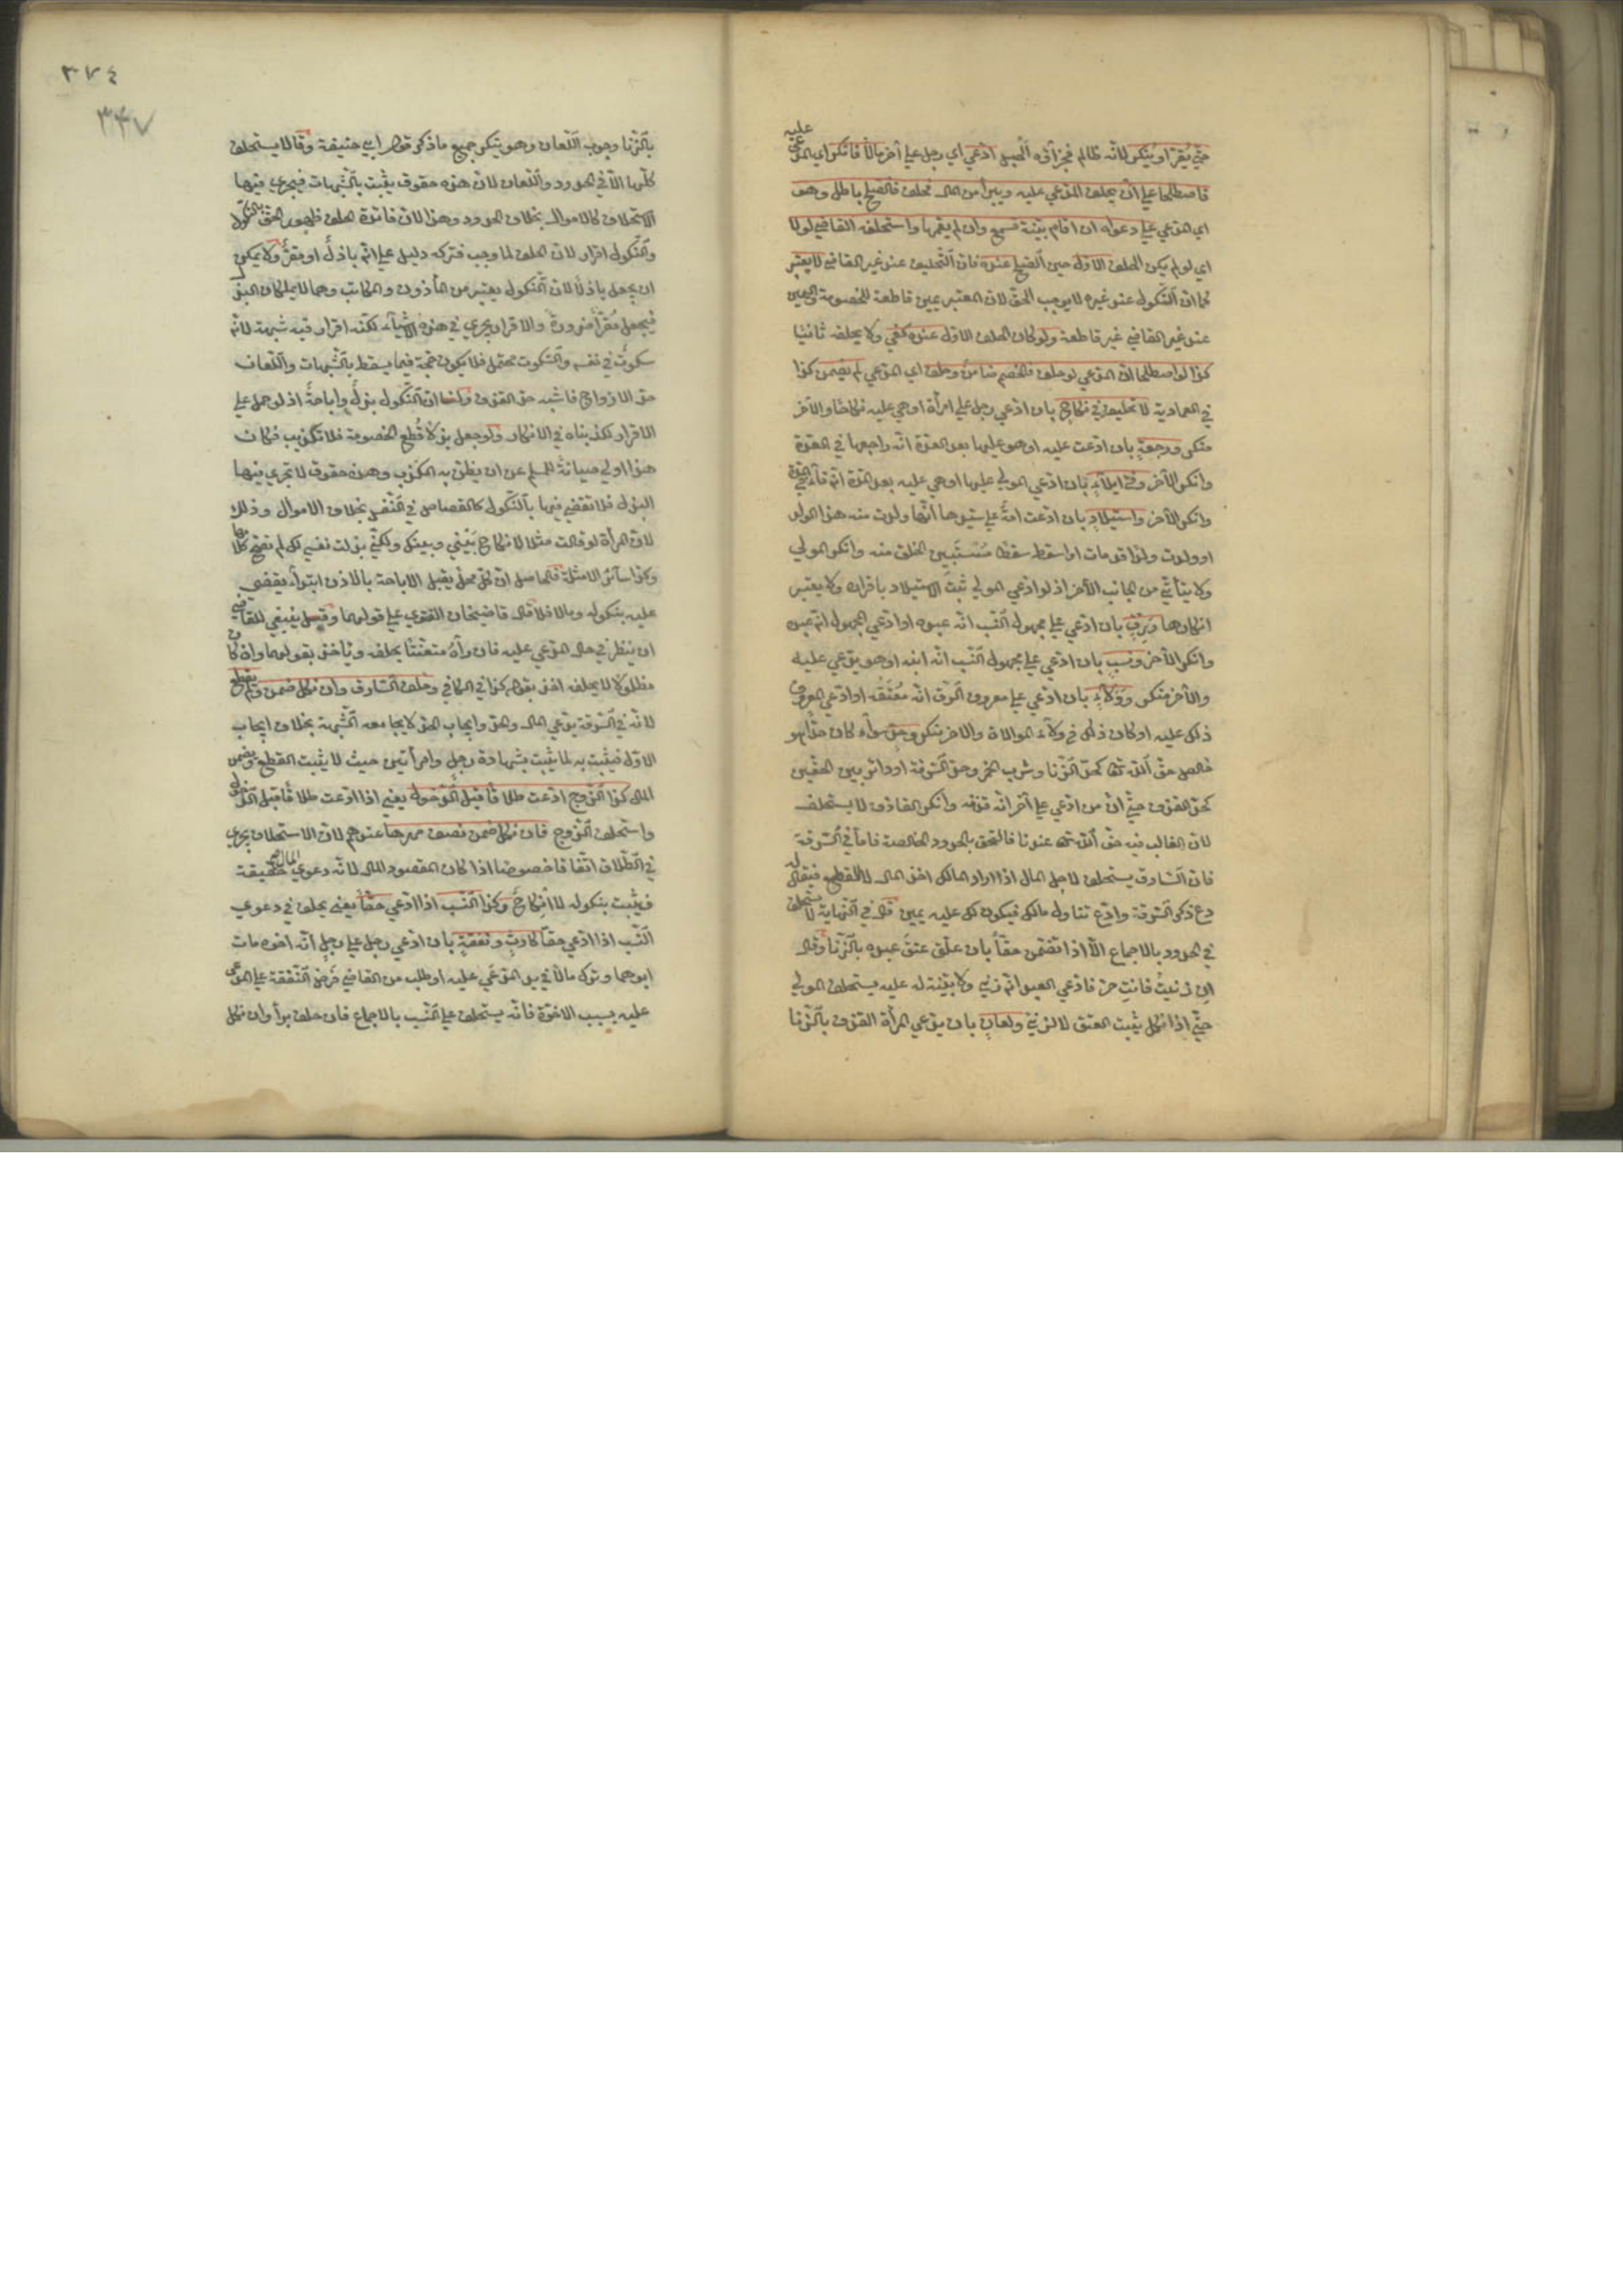 عليه
حتّي يُقرّ او ينكر لانّه ظالم فجزآؤه الحبس ادّعي اي رجل علي آخر مالا فانكر اي المدّعي
فاصطلحا علي ان يحلف المدّعي عليه ويبرأ من المال فحلف فالصلح باطل وهو
اي المدّعي علي دعواه ان اقام بيّنة تسمع وان لم يقمها واستحلفه القاضي لولا
اي لو لم يكن الحلف الاوّل حين الصلح عنده فان التّحليف عند غير القاضي لا يعتبر
كما ان النّكول عند غيره لا يوجب الحق لان المعتبر يمين قاطعة للخصومة واليمين
عند غير القاضي غير قاطعة ولو كان الحلف الاول عنده كفي ولا يحلفه ثانيا
كذا لو اصطلحا انّ المدعي لو حلف فالخصم ضامن وحلف اي المدّعي لم يضمن كذا
في العمادية لا تحليف في نكاح بان ادّعي رجل علي امرأة او هي عليه نكاحا والآخر
منكر ورجعة بان ادّعت عليه او هو عليها بعد العدّة انّه راجعها في العدّة
وانكر الآخر وفئ ايلآء بان ادّعي المولي عليها او هي عليه بعد المدّة انّه فآء في المدّة
وانكر الآخر واستيلاد بان ادّعت امة علي سيدها انّها ولدت منه هذا الولد
او ولدت ولدا قد مات او اسقطت سقطا مستبين الخلق منه وانكر المولي
ولا يتأتّي من الجانب الآخر اذ لو ادّعي المولي ثبت الاستيلاد باقراره ولا يعتبر
انكارها ورق بان ادّعي علي مجهول النّسب انّه عبده او ادّعي المجهول انّه عبده
وانكر الآخر ونسب بان ادّعي علي مجهول النّسب انّه ابنه او هو يدّعي عليه
والآخر منكر وولآء بان ادّعي علي معروف الرّق انّه معتقه او ادّعي المعروف
ذلك عليه او كان ذلك في ولآء الموالاة والآخر ينكر وحدّ سوآء كان حدّا هو
خالص حقّ الله تعالى كحدّ الزّنا وشرب الخمر وحدّ السّرقة او دائر بين الحقّين
كحدّ القذف حتّي انّ من ادّعي علي آخر انّه قذفه وانكر القاذف لا يستحلف
لان الغالب فيه حقّ الله تعالى عندنا فالتحق بالحدود الخالصة فاما في السّرقة
فان السّارق يستحلف لاجل المال اذا اراد المالك اخذ المال لا القطع فيقال له
دع ذكر السّرقة وادّع تناول مالك فيكون لك عليه يمين قال في النّهاية لا يستحلف
في الحدود بالاجماع الّا اذا تضمّن حقّا بان علّق عتق عبده بالزّنا وقال
ان زنيت فانت حرّ فادّعي العبد انّه زني ولا بيّنة له عليه يستحلف المولي
حتّي اذا نكل ثبت العتق لا الزني ولعان بان يدّعي المرأة القذف بالزّنا
٣٧٤
٣٤٧
بالزّنا وجوب اللّعان وهو ينكر جميع ما ذكر قول ابي حنيفة وقالا يستحلف
كلّها الّا في الحدود واللّعان لانّ هذه حقوق يثبت بالشّبهات فيجري فيها
الاستحلاف كالاموال بخلاف الحدود وهذا لانّ فائدة الحلف ظهور الحق بالنّكول
والنّكول اقرار لانّ الحلف لما وجب فتركه دليل علي انّه باذل او مقرّ ولا يمكن
ان يجعل باذلا لانّ النّكول يعتبر من المأذون والمكاتب وهما لا يملكان البذل
فيجعل مقرّا ضرورة والاقرار يجري في هذه الاشيآء لكنّه اقرار فيه شبهة لانّه
سكوت في نفسه والسّكوت محتمل فلا يكون حجّة فيما يسقط بالشّبهات واللّعان
حدّ الازواج فاشبه حدّ القذف وله انّ النّكول بذل واباحة اذ لو حمل علي
الاقرار لكذّبناه في الانكار ولو جعل بذلا قطع الخصومة فلا تكذيب فكان
هذا اولي صيانة للمسلم عن ان يظنّ به الكذب وهذه حقوق لا تجري فيها
البذل فلا تقضي فيها بالنّكول كالقصاص في النّفس بخلاف الاموال وذلك
لانّ المرأة لو قالت مثلا لا نكاح بيني وبينك ولكنّي بذلت نفسي لك لم تصحّ كلامها
وكذا سآئر الامثلة فالحاصل انّ كلّ محلّ يقبل الاباحة بالاذن ابتدآء يقضي
عليه بنكوله وما لا فلا قال قاضيخان الفتوي علي قولهما وقيل ينبغي للقاضي
ان ينظر في حال المدّعي عليه فان رآه متعنّتا يحلفه ويأخذ بقولهما وان كان
مظلوما لا يحلفه اخذ بقوله كذا في الكافي وحلف السّارق وان نكل ضمن ولم يقطع
لانّه في السّرقة يدّعي المال والحدّ وايجاب الحدّ لا يجامعه الشّبهة بخلاف ايجاب
الاوّل فيثبت به لما يثبت بشهادة رجل وامرأتين حيث لا يثبت القطع ويضمن
المال كذا الزّوج ادّعت طلاقا قبل الدّخول يعني اذا ادّعت طلاقا قبل الدّخول
واستحلف الزّوج فان نكل ضمن نصف مهرها عندهم لانّ الاستحلاف يجري
في الطّلاق اتّفاقا خصوصا اذا كان المقصود المال لانّه دعوي المال حقيقة
فيثبت بنكوله لا النكاح وكذا النّسب اذا ادّعي حقّا يعني يحلف في دعوي
النّسب اذا ادّعي حقّا كارث ونفقة بان ادّعي رجل علي رجل انّه اخوه مات
ابوهما وترك مالا في يد المدّعي عليه او طلب من القاضي فرض النّفقة علي المدّعي
عليه بسبب الاخوّة فانّه يستحلف علي النّسب بالاجماع فان حلف برأ وان نكل